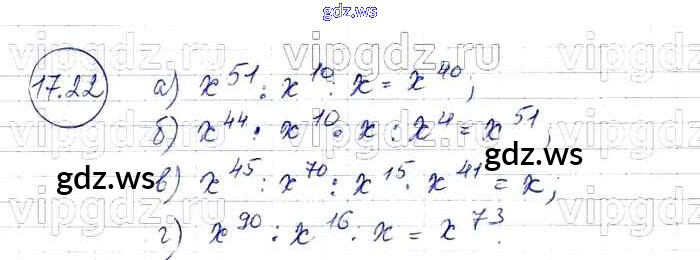 gdz.ws
vipgdz.ru vipgdz.ru vipgdz.ru
17.22 а) x⁵¹ : x¹⁰ : x = x⁴⁰;
б) x⁴⁴ · x¹⁰ · x : x⁴ = x⁵¹;
gdz.ws
gdz.ws
в) x⁴⁵ : x⁷⁰ : x¹⁵ · x⁴¹ = x;
г) x⁹⁰ : x¹⁶ · x = x⁷³.
gdz.ws